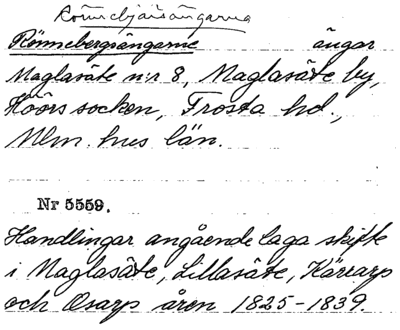 Rönnebjärsängarna
Rönnebergsängarne ängar
Maglasäte n:r 8, Maglasäte by,
Höörs socken, Frosta hd.,
Mlm. hus län.
Nr 5559.
Handlingar angående laga skifte
i Maglasäte, Lillasäte, Kärrarp
och Osarp åren 1825-1839.